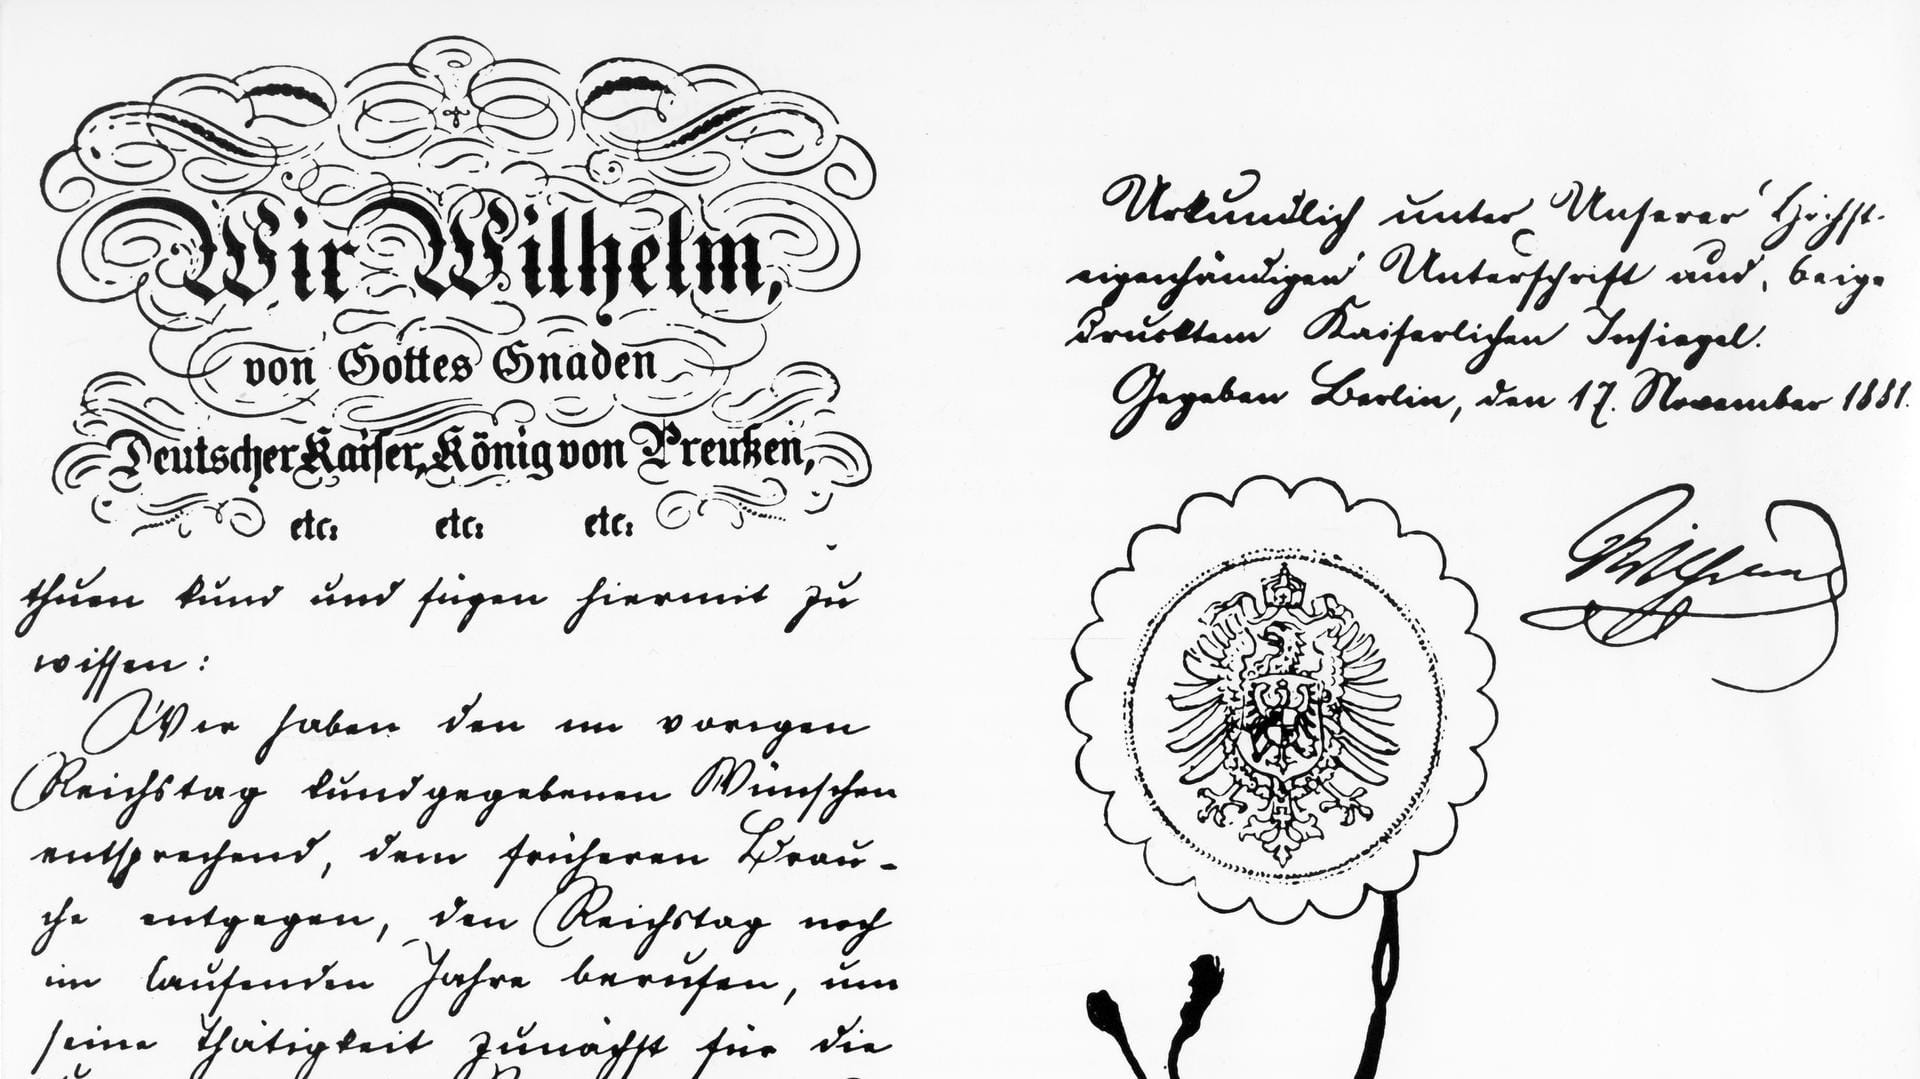 Wir Wilhelm,
von Gottes Gnaden
Deutscher Kaiser, König von Preußen,
etc: etc: etc:
thuen kund und fügen hiermit zu
wissen:
Wir haben den im vorigen
Reichstag kundgegebenen Wünschen
entsprechend, dem früheren Brau-
che entgegen, den Reichstag noch
im laufenden Jahre berufen, um
seine Thätigkeit zunächst für die
Urkundlich unter Unserer Höchst-
eigenhändigen Unterschrift und beige-
drucktem Kaiserlichen Insiegel.
Gegeben Berlin, den 17. November 1881.
Wilhelm